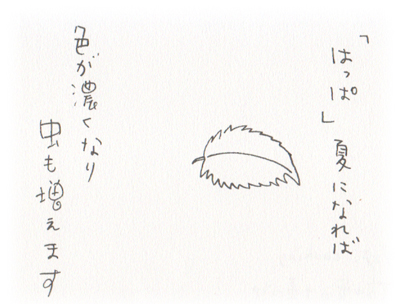 「はっぱ」夏になれば
色が濃くなり
虫も増えます